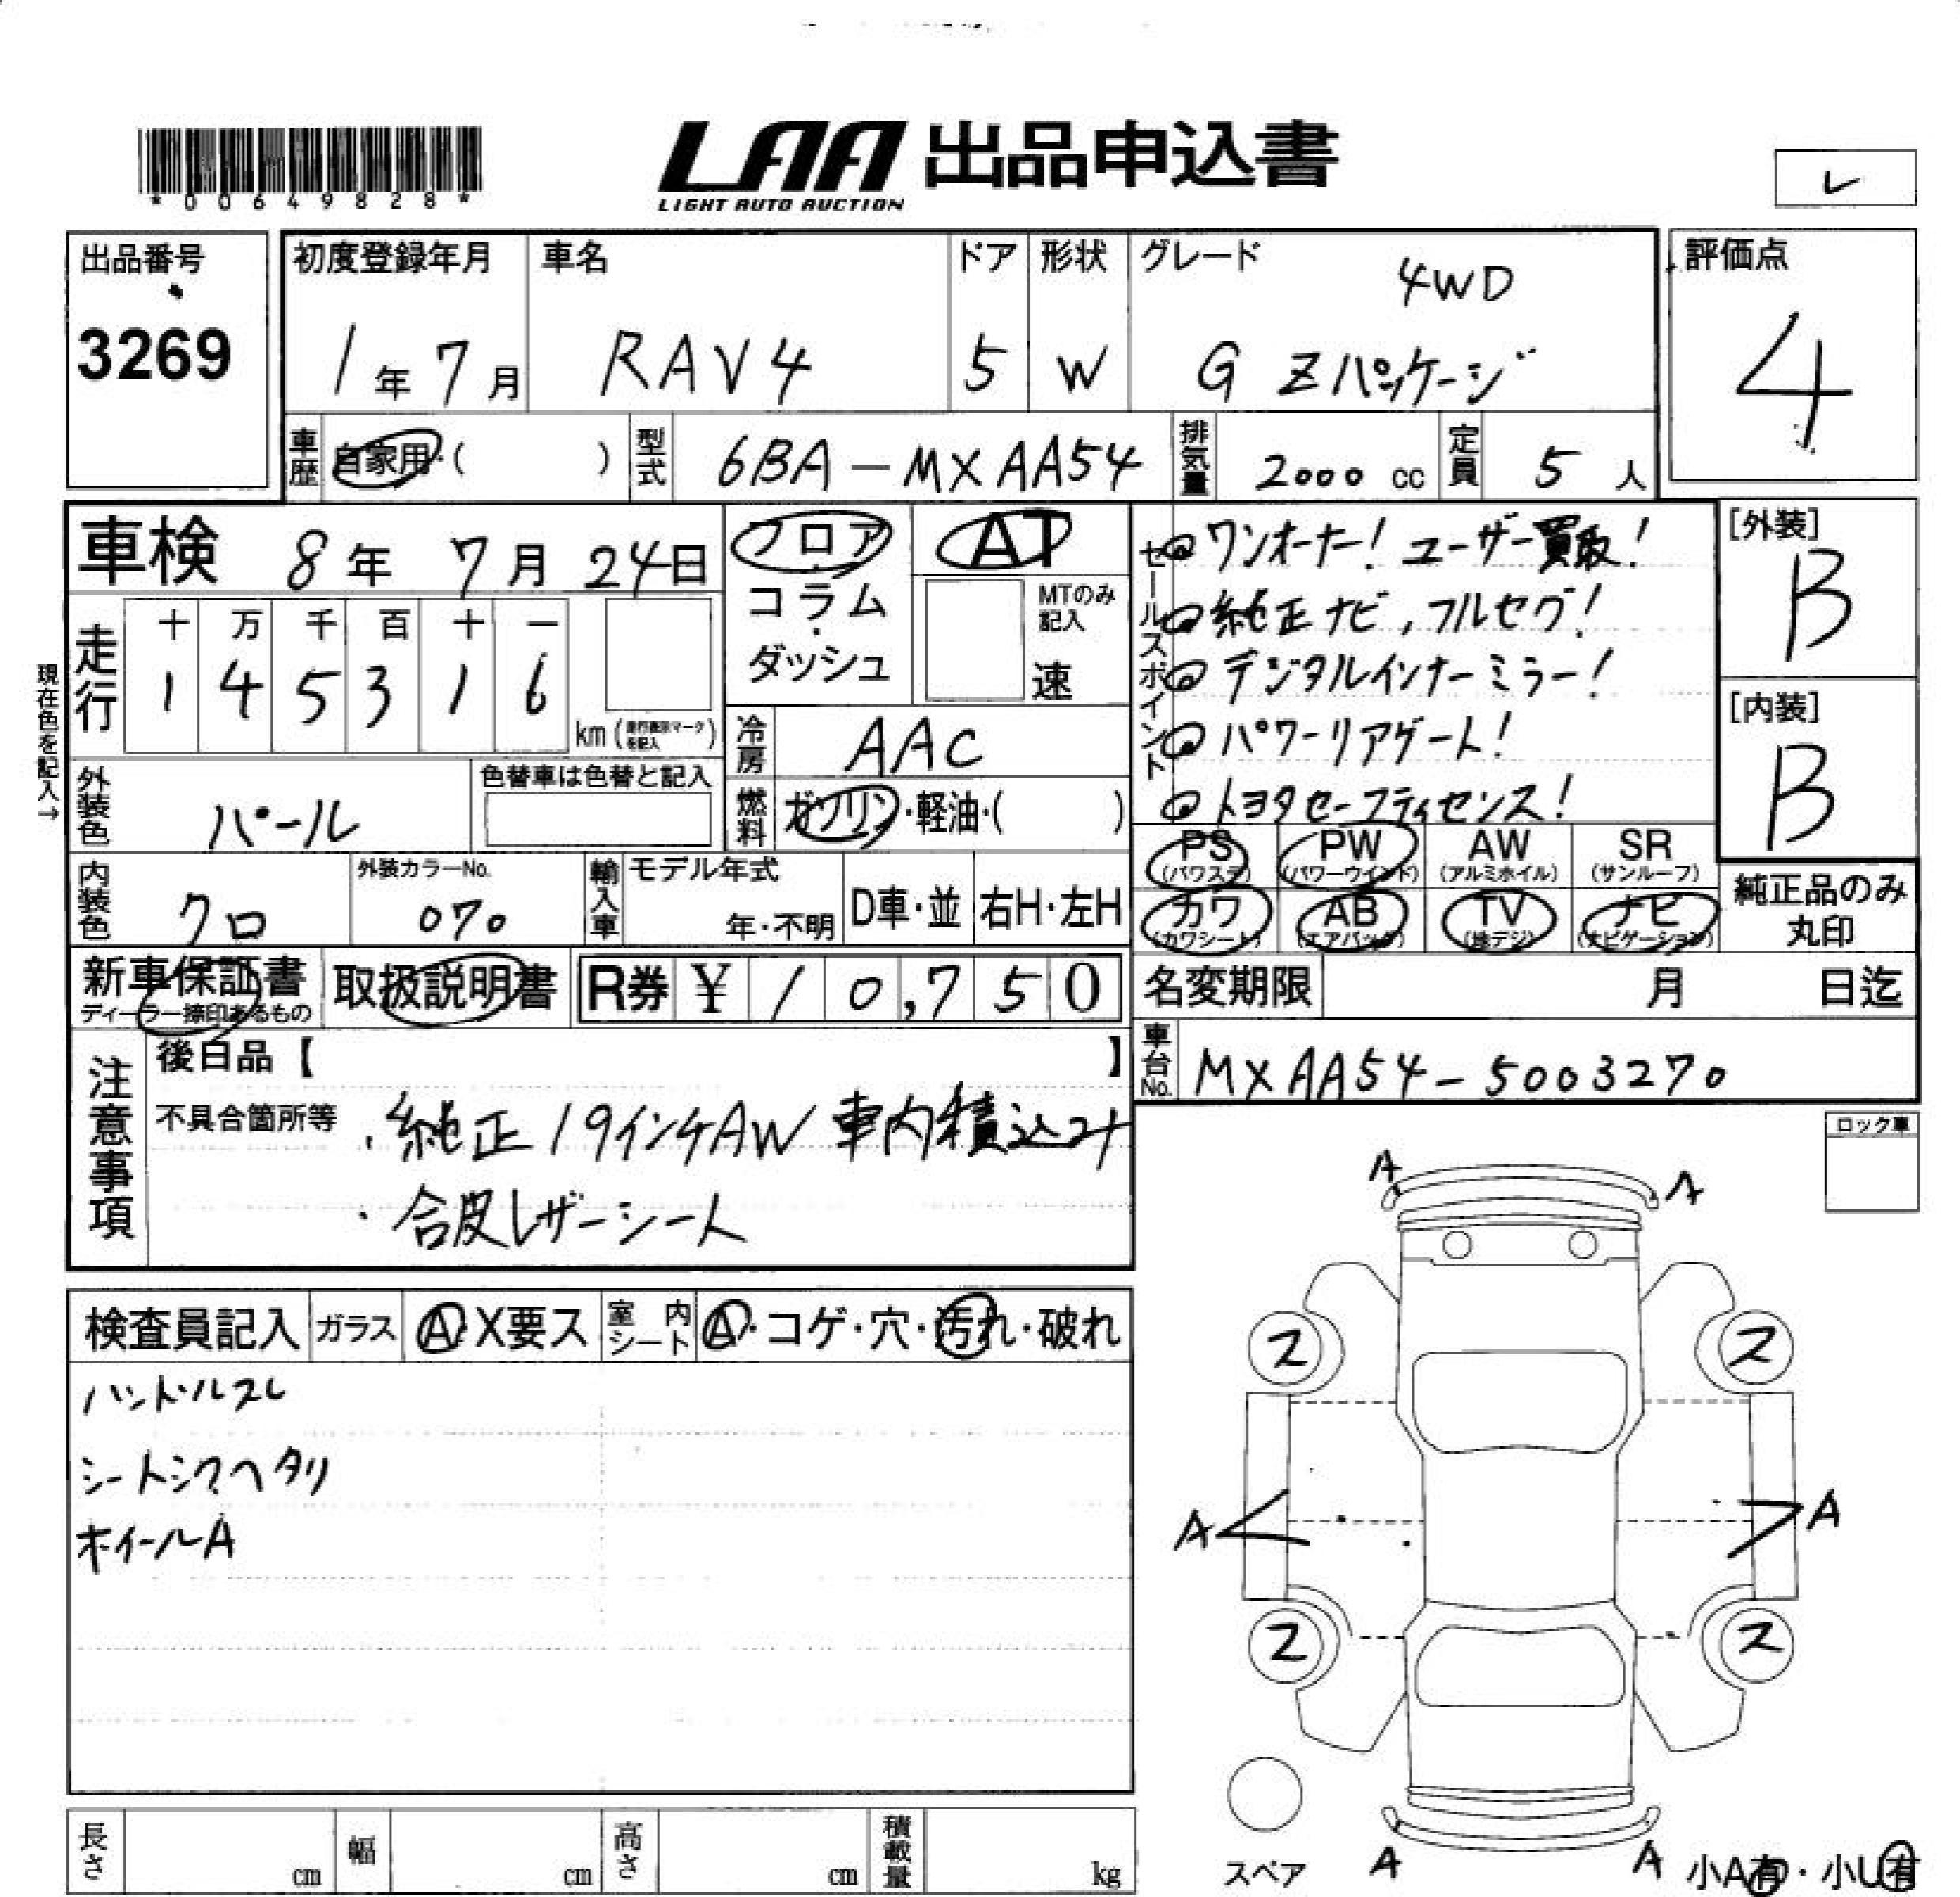 *00649828*
LAA 出品申込書
LIGHT AUTO AUCTION
レ
出品番号
3269
初度登録年月
1年 7月
車名
RAV4
ドア
5
形状
W
グレード
4WD
G Zパッケージ
評価点
4
車歴
自家用・( )
型式
6BA-MXAA54
排気量
2000 cc
定員
5 人
車検 8年 7月 24日
走行
十 万 千 百 十 一
1 4 5 3 1 6
km
現在色を記入→
フロア
コラム
・
ダッシュ
AT
MTのみ
記入
速
冷房
AAC
燃料
ガソリン・軽油・( )
セールスポイント
◎ワンオーナー! ユーザー買取!
◎純正ナビ,フルセグ!
◎デジタルインナーミラー!
◎パワーリアゲート!
◎トヨタセーフティセンス!
[外装]
B
[内装]
B
外装色
パール
色替車は色替と記入
内装色
クロ
外装カラーNo.
070
輸入車
モデル年式
年・不明
D車・並
右H・左H
PS
(パワステ)
PW
(パワーウインド)
AW
(アルミホイル)
SR
(サンルーフ)
カワ
(カワシート)
AB
(エアバッグ)
TV
(地デジ)
ナビ
(ナビゲーション)
純正品のみ
丸印
新車保証書
ディーラー捺印あるもの
取扱説明書
R券 ¥ 10,750
名変期限 月 日迄
車台No.
MXAA54-5003270
注意事項
後日品【 】
不具合箇所等
・純正19インチAW 車内積込み
・合皮レザーシート
ロック車
検査員記入
ガラス
A・X要ス
室内
シート
A・コゲ・穴・汚れ・破れ
ハンドルスレ
シートシワヘタリ
ホイールA
A
A
ス
ス
A
A
ス
ス
スペア
A
A
小A有・小U有
長さ cm
幅 cm
高さ cm
積載量 kg